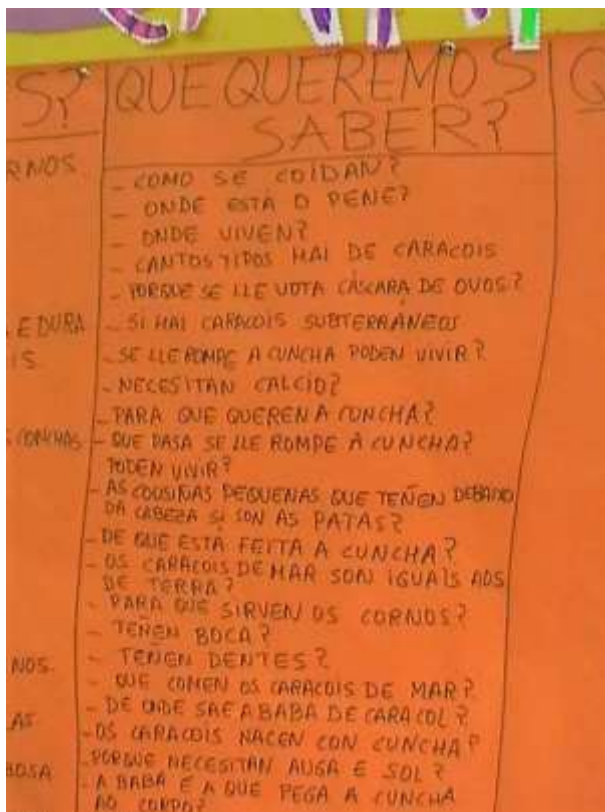 S? QUE QUEREMOS Q
SABER?
RNOS
- COMO SE COIDAN?
- ONDE ESTÁ O PENE?
- ONDE VIVEN?
- CANTOS TIPOS HAI DE CARACOIS
- PORQUE SE LLE VOTA CÁSCARA DE OVOS?
E DURA - SI HAI CARACOIS SUBTERRÁNEOS
IS - SE LLE ROMPE A CUNCHA PODEN VIVIR?
- NECESITAN CALCIO?
- PARA QUE QUEREN A CUNCHA?
CONCHAS - QUE PASA SE LLE ROMPE A CUNCHA?
PODEN VIVIR?
- AS COUSIÑAS PEQUENAS QUE TEÑEN DEBAIXO
DA CABEZA SI SON AS PATAS?
- DE QUE ESTÁ FEITA A CUNCHA?
- OS CARACOIS DE MAR SON IGUAIS AOS
DE TERRA?
- PARA QUE SIRVEN OS CORNOS?
- TEÑEN BOCA?
NOS - TEÑEN DENTES?
- QUE COMEN OS CARACOIS DE MAR?
AS - DE ONDE SAE A BABA DE CARACOL?
- OS CARACOIS NACEN CON CUNCHA?
BOSA - PORQUE NECESITAN AUGA E SOL?
- A BABA E A QUE PEGA A CUNCHA
AO CORPO?